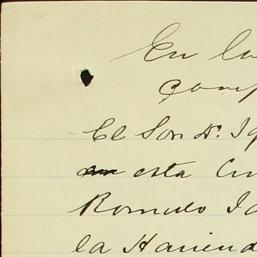 En la
comp
El Son Dn. Ig
esta Ciu
Romulo Ig
la Haciend